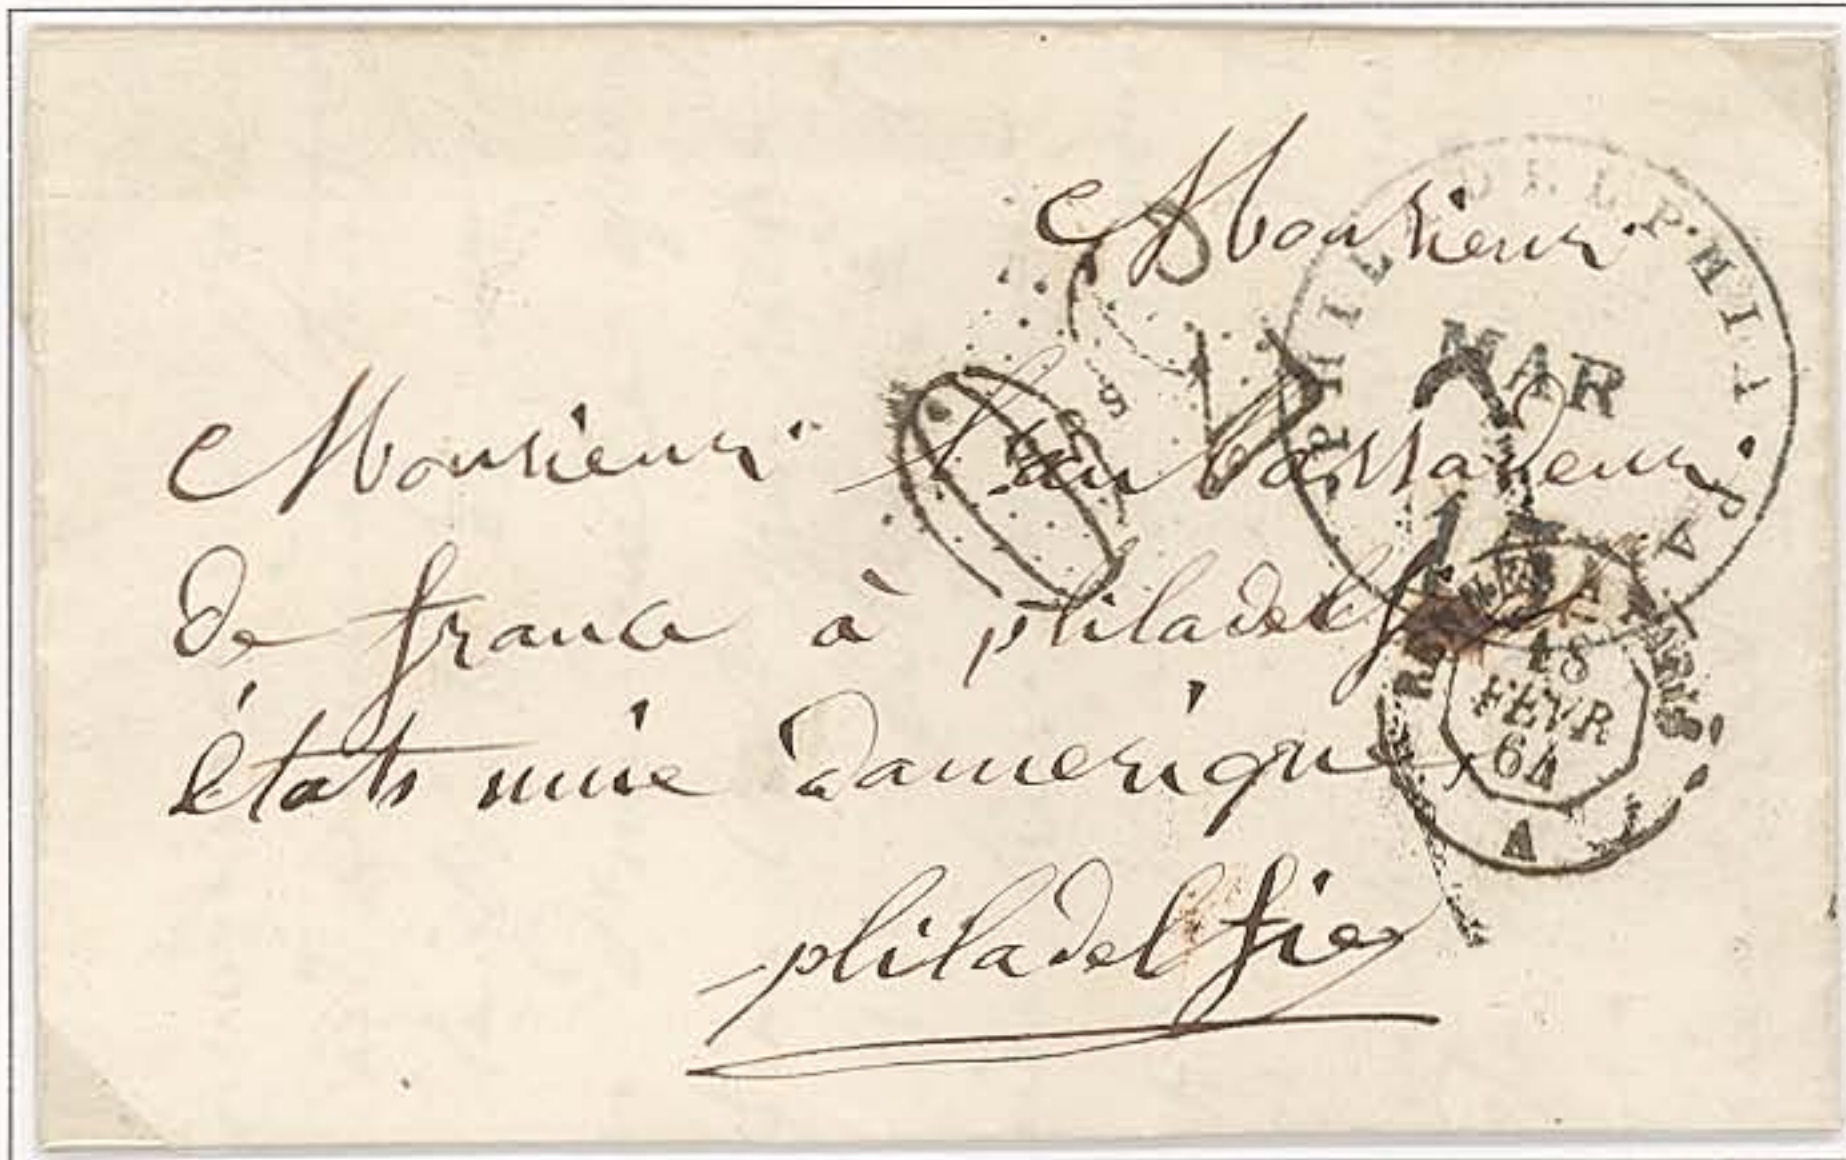 Monsieur
Monsieur l'ambassadeur
de france à philadelfie
états unie damerique
philadelfie
PHILADELPHIA PA.
MAR
RENNES A PARIS
18
FEVR
64
A